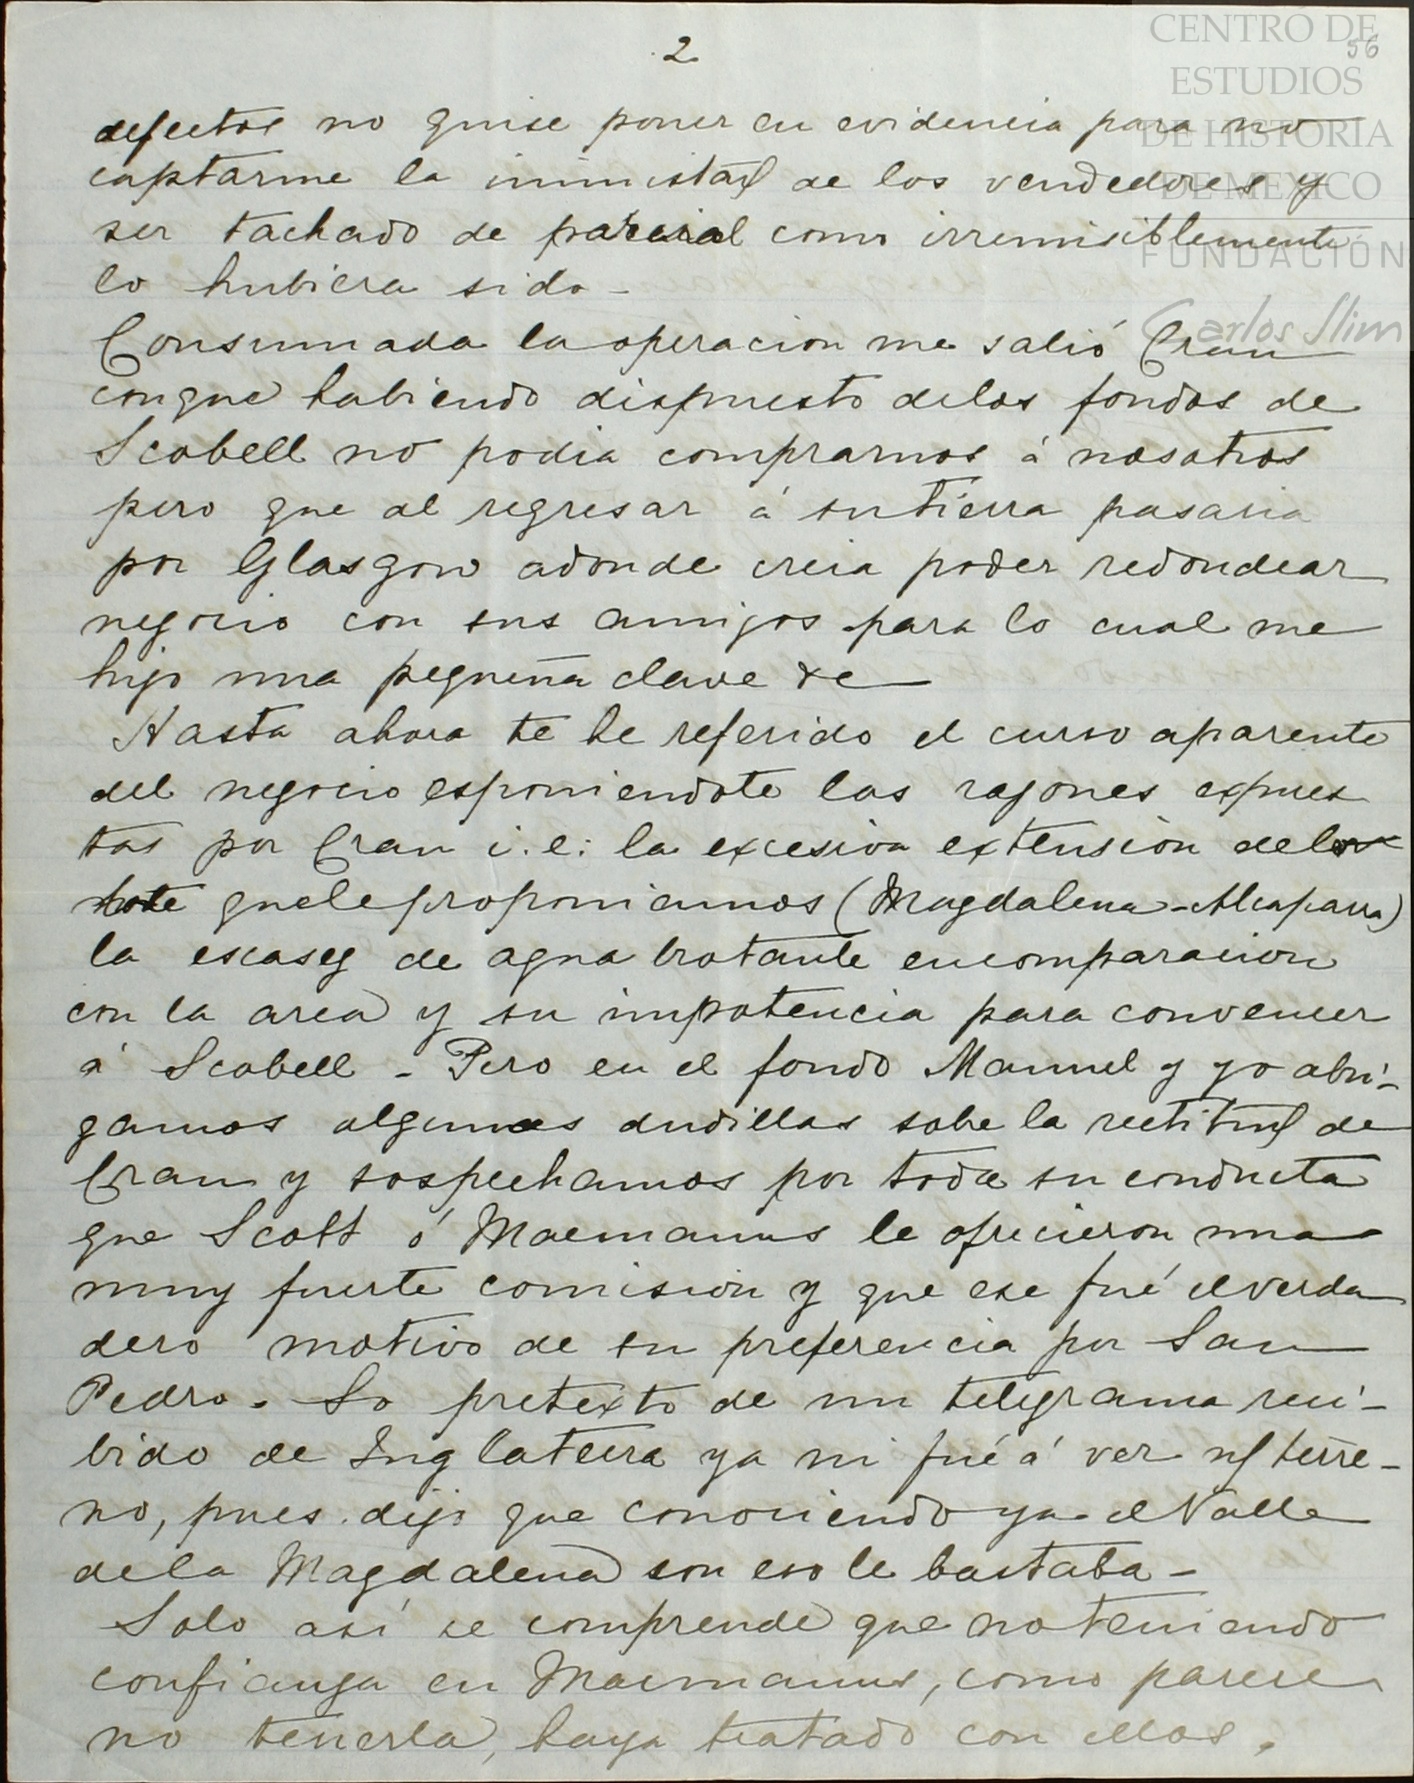 2
56
CENTRO DE
ESTUDIOS
DE HISTORIA
DE MEXICO
FUNDACIÓN
Carlos Slim
defectos no quise poner en evidencia para no
captarme la inimistad de los vendedores y
ser tachado de parcial como irremisiblemente
lo hubiera sido -
Consumada la operacion me salió Cran
conque habiendo dispuesto delos fondos de
Scobell no podia comprarnos á nosotros
pero que al regresar á su tierra pasaria
por Glasgow adonde creia poder redondear
negocio con sus amigos para lo cual me
hizo una pequeña clave &c
Hasta ahora te he referido el curso aparente
del negocio esponiendote las razones expues
tas por Cran i.e: la excesiva extension del
lote quele proponiamos (Magdalena - Alcaparra)
la escasez de agua brotante encomparacion
con la area y su impotencia para convencer
á Scobell - Pero en el fondo Manuel y yo abri-
gamos algunas dudillas sobre la rectitud de
Cran y sospechamos por toda su conducta
que Scott ó Macmanus le ofrecieron una
muy fuerte comision y que ese fué el verda
dero motivo de su preferencia por San
Pedro. So pretexto de un telegrama reci-
bido de Inglaterra ya ni fué á ver el terre-
no, pues dijo que conociendo ya el Valle
dela Magdalena con eso le bastaba -
Solo así se comprende que no teniendo
confianza en Macmanus, como parece
no tenerla, haya tratado con ellos.